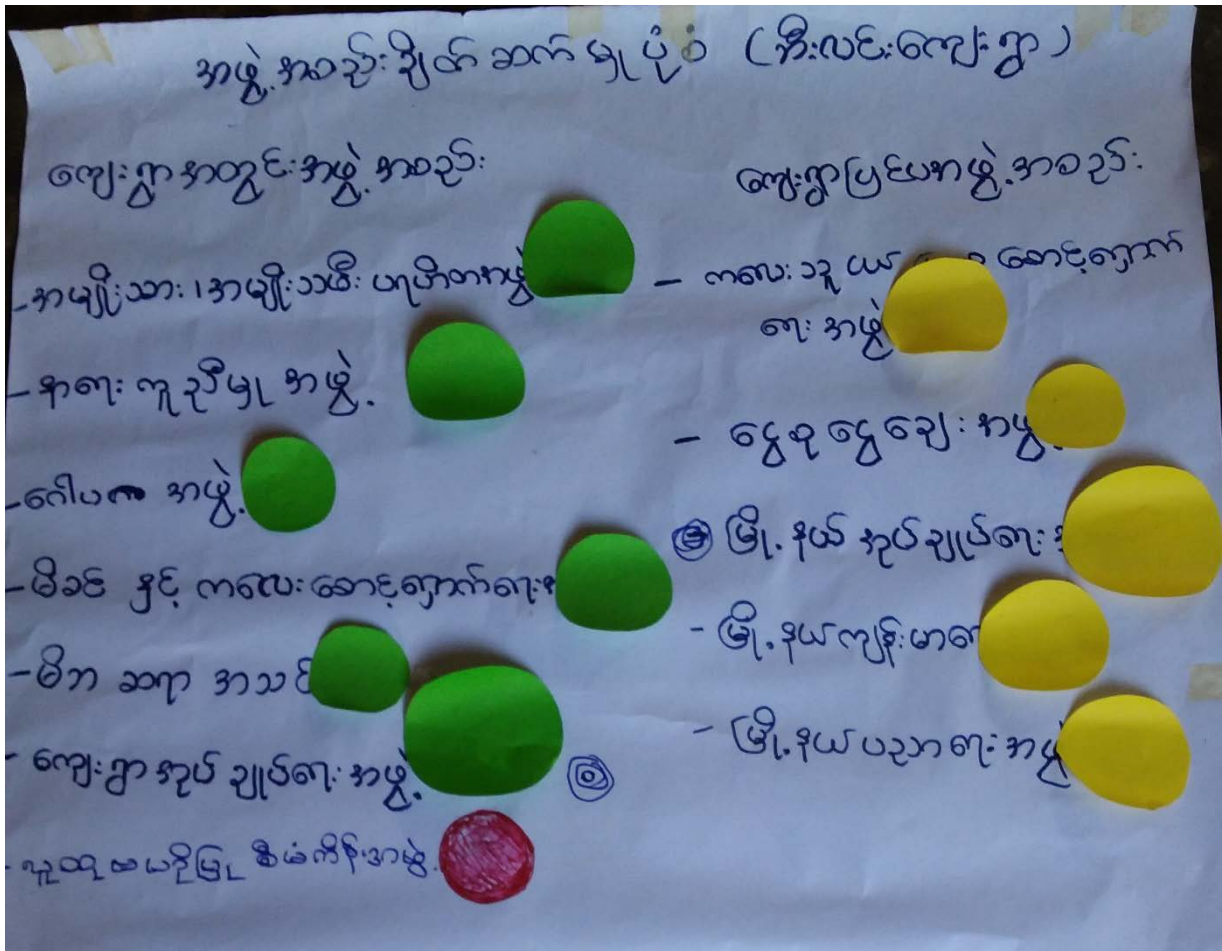 အဖွဲ့အစည်းချိတ်ဆက်မှုပုံစံ (အီးလင်းကျေးရွာ)
ကျေးရွာအတွင်းအဖွဲ့အစည်း
- အမျိုးသား၊ အမျိုးသမီး ပရဟိတအဖွဲ့
- နာရေး ကူညီမှု အဖွဲ့
- ဂေါပက အဖွဲ့
- မိခင် နှင့် ကလေးစောင့်ရှောက်ရေး
- မိဘ ဆရာ အသင်
- ကျေးရွာအုပ်ချုပ်ရေးအဖွဲ့
- လူထုဗဟိုပြု စီမံကိန်းအဖွဲ့
ကျေးရွာပြင်ပအဖွဲ့အစည်း
- ကလေးသူငယ် စောင့်ရှောက်
ရေးအဖွဲ့
- ငွေစုငွေချေးအဖွဲ့
မြို့နယ်အုပ်ချုပ်ရေး
- မြို့နယ်ကျန်းမာ
- မြို့နယ်ပညာရေးအဖွဲ့